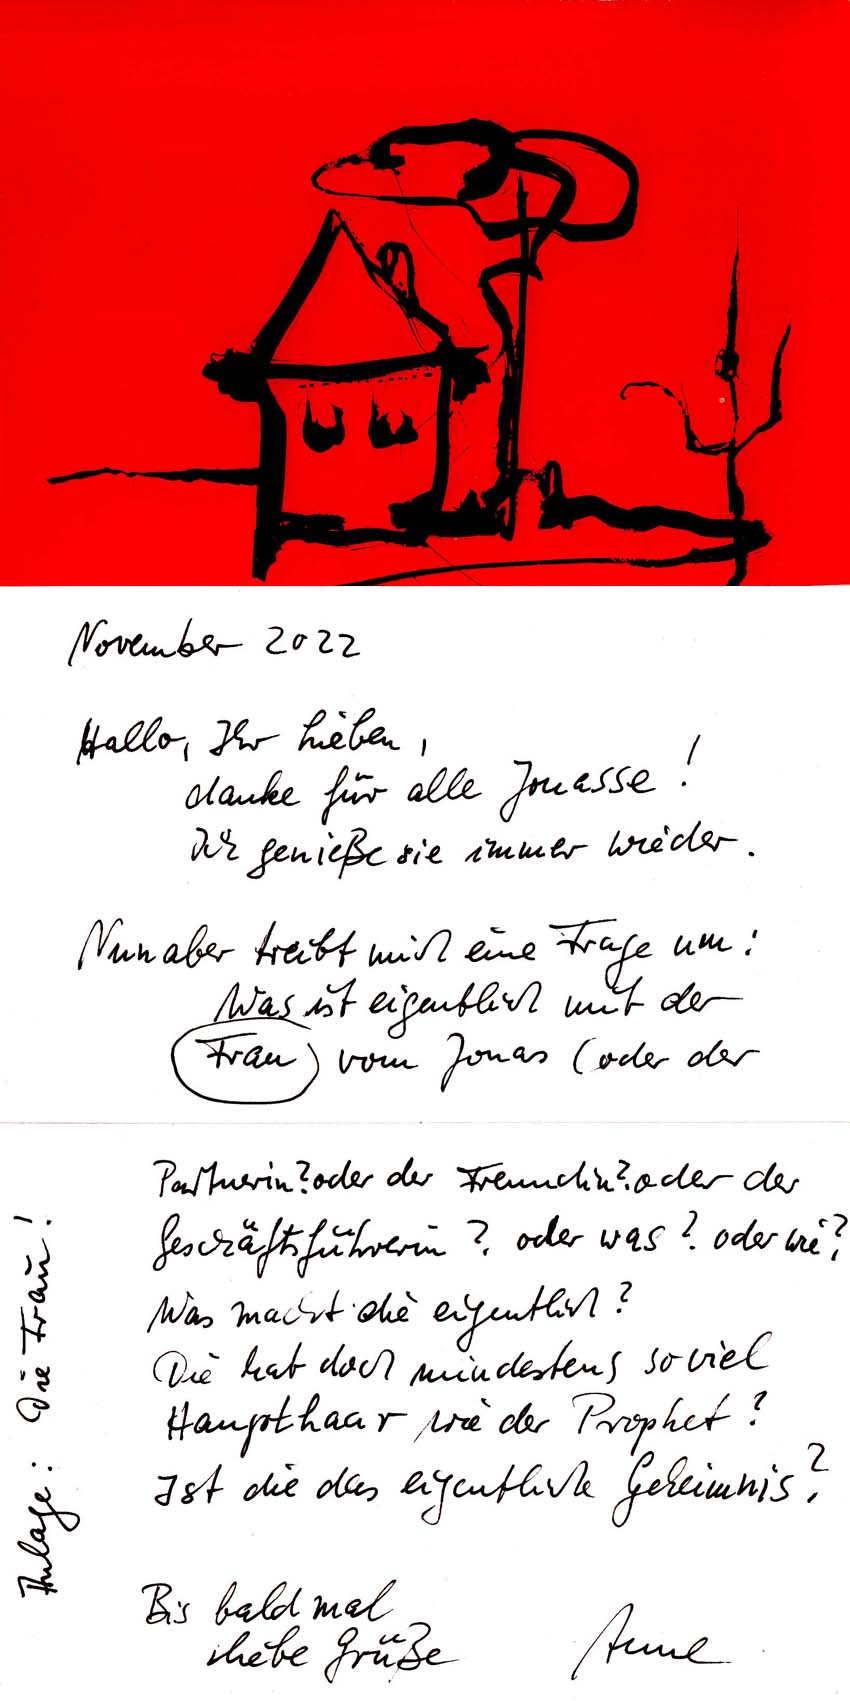 November 2022
Hallo, Ihr Lieben,
danke für alle Jonasse!
Ich genieße sie immer wieder.
Nun aber treibt mich eine Frage um:
Was ist eigentlich mit der
Frau vom Jonas (oder der
Partnerin? oder der Freundin? oder der
Geschäftsführerin?, oder was?. oder wie?,
Was macht die eigentlich?
Die hat doch mindestens soviel
Haupthaar wie der Prophet?
Ist die das eigentliche Geheimnis?,
Bis bald mal
liebe Grüße Anne
Anlage: Die Frau!